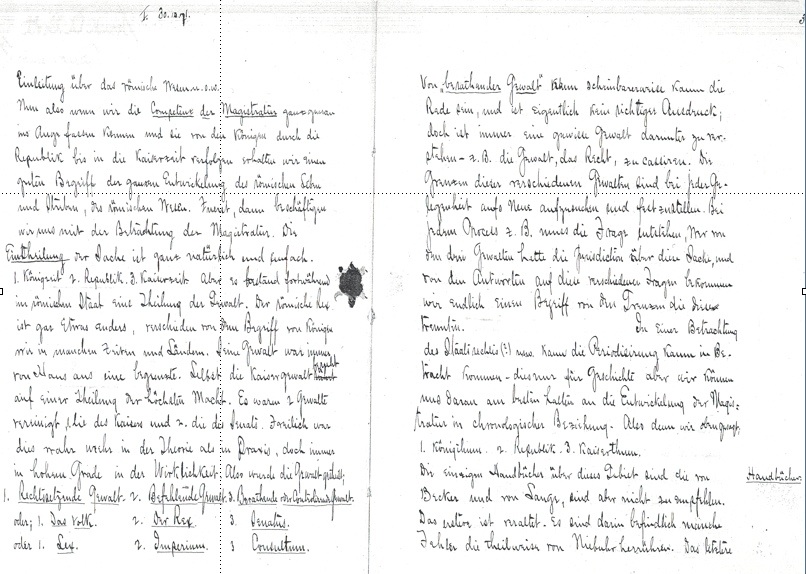 I. 30.10.71.
Einleitung über das römische Wesen u.s.w.
Nun also wenn wir die Competenz der Magistratur ganz genau
ins Auge fassen können und sie von den Königen durch die
Republik bis in die Kaiserzeit verfolgen erhalten wir einen
guten Begriff der ganzen Entwickelung des römischen Leben
und Streben, des römischen Wesen. Zuerst, dann beschäftigen
wir uns mit der Betrachtung der Magistratur. Die
Eintheilung der Sache ist ganz natürlich und einfach.
1. Königzeit 2. Republik. 3. Kaiserzeit. Aber es bestand fortwährend
im römischen Staat eine Theilung der Gewalt. Der römische Rex
ist gar Etwas anders, verschieden von dem Begriff von Königen
wie in manchen Zeiten und Ländern. Seine Gewalt war immer
von Haus aus eine begrenzte. Selbst die Kaisergewalt beruht
auf einer Theilung der höchsten Macht. Es waren 2 Gewalte
vereinigt 1. die des Kaisers und 2. die des Senats. Freilich war
dies mehr in der Theorie als in Praxis, doch immer
in hohem Grade in der Wirklichkeit. Also wurde die Gewalt getheilt;
1. Rechtsetzende Gewalt. 2. Befehlende Gewalt. 3. Berathende oder Controlirende Gewalt.
oder; 1. Das Volk. 2. Der Rex. 3. Senatus.
oder 1. Lex. 2. Imperium. 3 Consultum.
Von „berathender Gewalt" scheinbarerweise kann die
Rede sein, und ist eigentlich kein richtiger Ausdruck;
doch ist immer eine gewisse Gewalt darunter zu ver-
stehen – z.B. die Gewalt, das Recht, zu cassiren. Die
Grenzen dieser verschiedenen Gewalten sind bei jeder Ge-
legenheit aufs Neue aufzusuchen und festzustellen. Bei
jedem Process z.B. muss die Frage entstehen, Wer von
den drei Gewalten hatte die Jurisdiction über diese Sache, und
von den Antworten auf diese verschiedenen Fragen bekommen
wir endlich einen Begriff von den Grenzen die diese
trennten. In einer Betrachtung
des Staatsrechtes(?) kann die Periodisirung kaum in Be-
tracht kommen – dies nur für Geschichte aber wir können
uns daran am besten halten an die Entwickelung der Magis-
tratur in chronologischer Beziehung. Also denn wie oben gesagt,
1. Königthum. 2. Republik. 3. Kaiserthum.
Die einzigen Handbücher über dieses Gebiet sind die von Handbücher.
Becker und von Lange, sind aber nicht zu empfehlen.
Das erstere ist veraltet. Es sind darin befindlich manche
Fehler die theilweise von Niebuhr herrühren. Das letztere